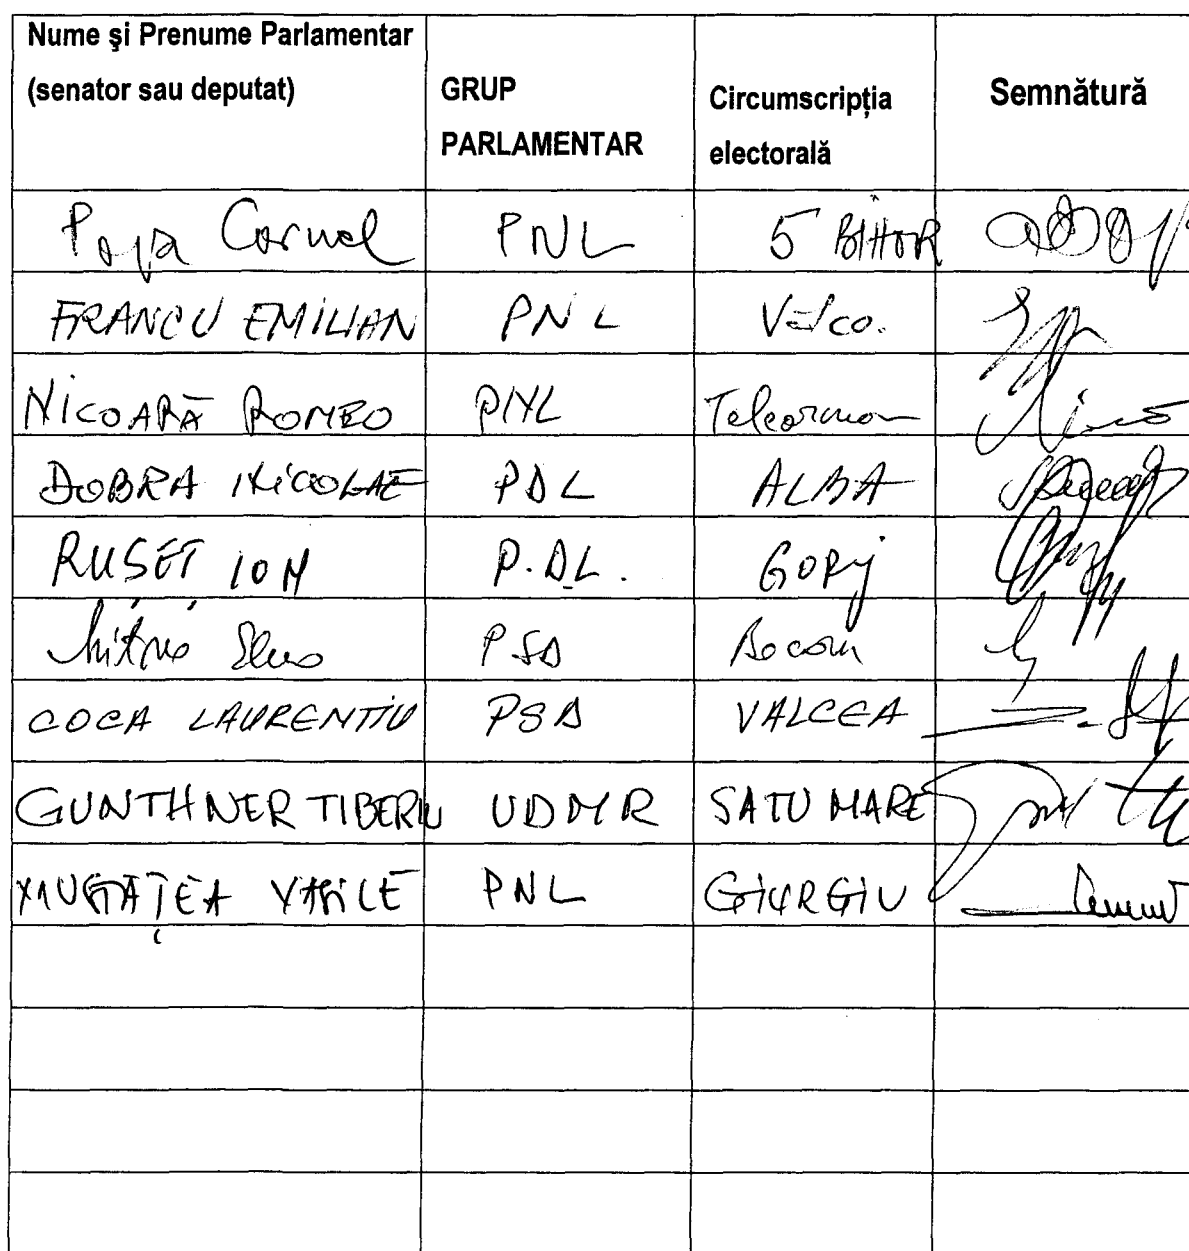 Nume şi Prenume Parlamentar
(senator sau deputat)
GRUP
PARLAMENTAR
Circumscripţia
electorală
Semnătură
Popa Cornel PNL 5 BIHOR
FRANCU EMILIAN PNL
NICOARĂ ROMEO PNL Teleorman
DOBRA NICOLAE PDL ALBA
RUSET ION P.DL. GORJ
PSD
COCA LAURENTIU PSD VALCEA
GUNTHNER TIBERIU UDMR SATU MARE
PNL GIURGIU